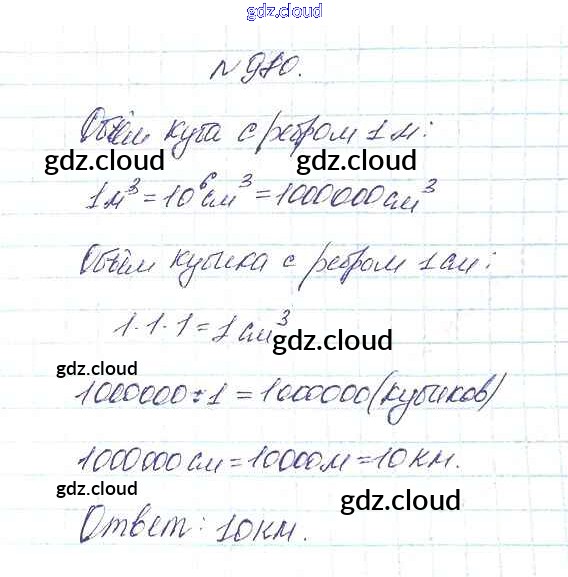 gdz.cloud
gdz.cloud
№980.
Объём куба с ребром 1 м:
gdz.cloud gdz.cloud
1м³ = 10⁶ см³ = 1000000 см³
Объём кубика с ребром 1 см:
1·1·1 = 1 см³
gdz.cloud
gdz.cloud
1000000 : 1 = 1000000 (кубиков)
1000000 см = 10000 м = 10 км.
gdz.cloud gdz.cloud
Ответ: 10 км.